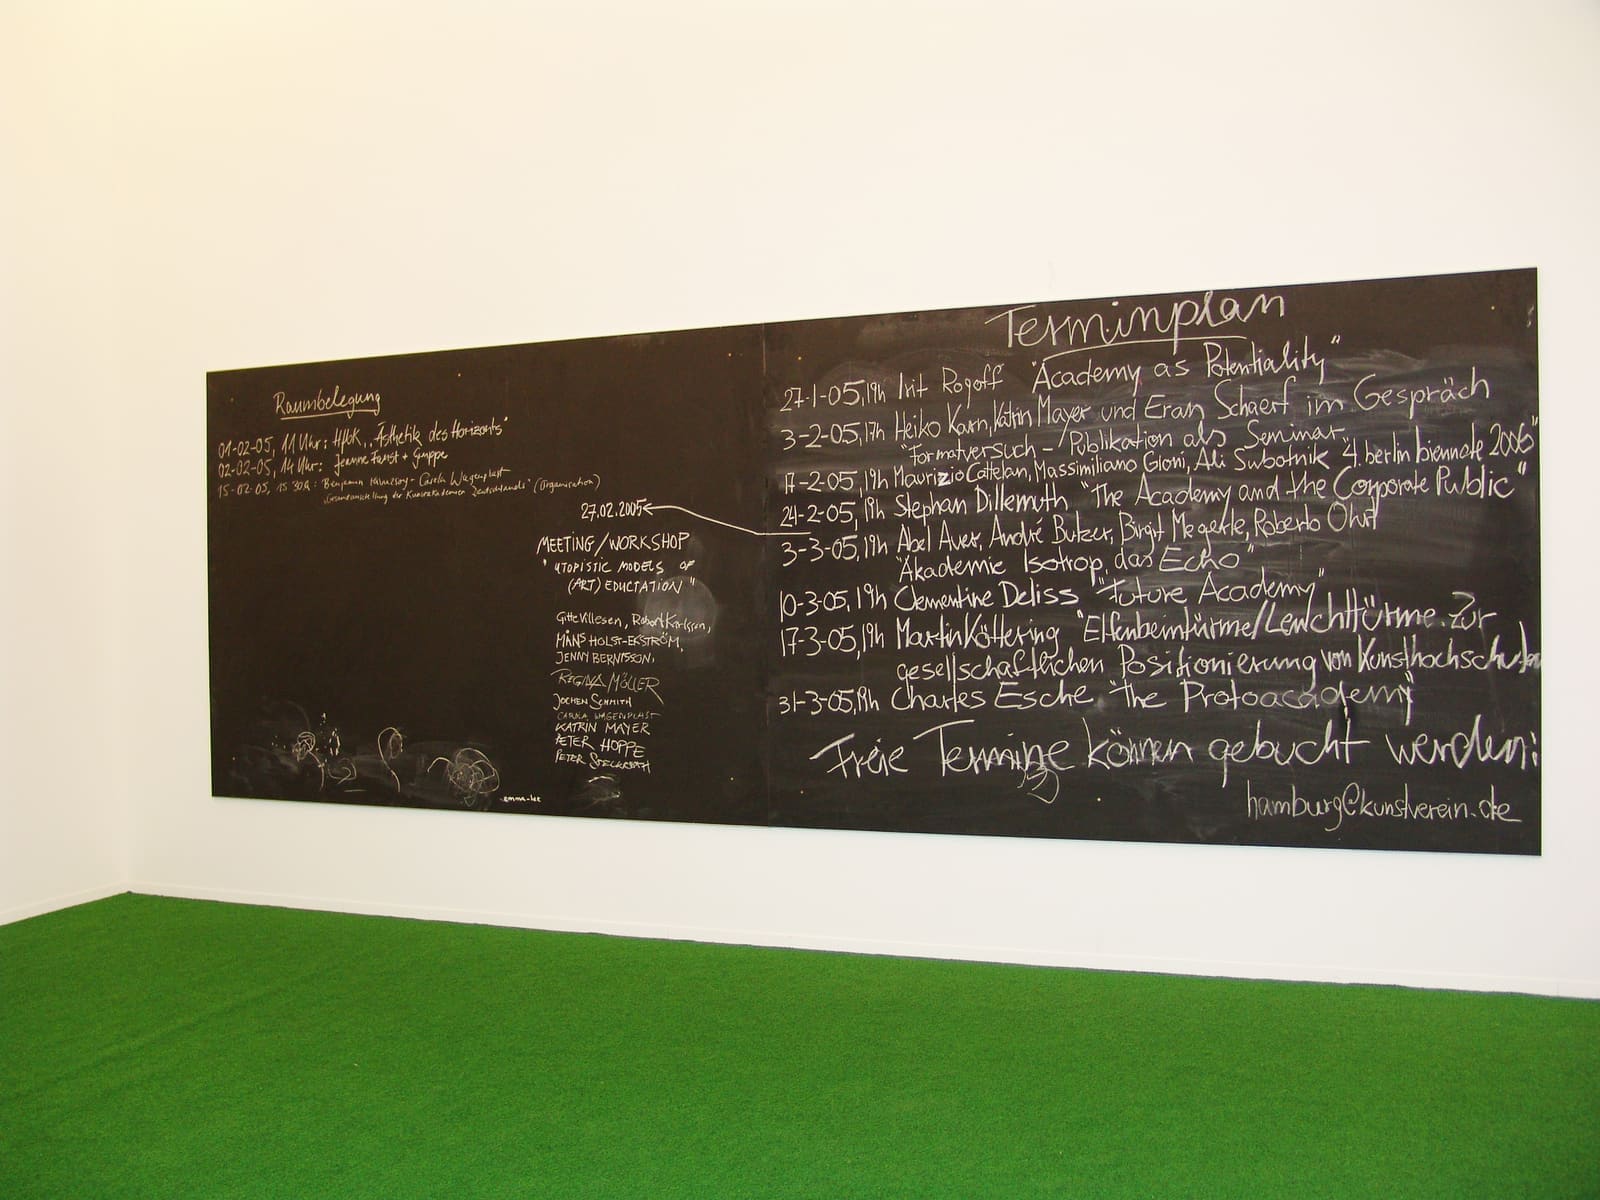 Raumbelegung
01-02-05, 11 Uhr: HfbK, „Ästhetik des Horizonts"
02-02-05, 14 Uhr: Jeanne Faust + Gruppe
15-02-05, 15 30h: Benjamin - Carola Wagenplast
"Gesamtausstellung der Kunstakademien Deutschlands" (Organisation)
27.02.2005
MEETING/WORKSHOP
"UTOPISTIC MODELS OF
(ART) EDUCTATION"
Gitte Villesen, Robert Karlsson,
MÅNS HOLST-EKSTRÖM,
JENNY BERNISSON,
REGINA MÖLLER
JOCHEN SCHMITH
CARLA WAGENPLAST
KATRIN MAYER
PETER HOPPE
PETER
emma-lee
Terminplan
27-1-05, 19h Irit Rogoff "Academy as Potentiality"
3-2-05, 17h Heiko Karn, Katrin Mayer und Eran Schaerf im Gespräch
"Formatversuch - Publikation als Seminar
17-2-05, 19h Maurizio Cattelan, Massimiliano Gioni, Ali Subotnik "4. berlin biennale 2006"
24-2-05, 19h Stephan Dillemuth "The Academy and the Corporate Public"
3-3-05, 19h Abel Auer, André Butzer, Birgit Megerle, Roberto Ohrt
"Akademie Isotrop, das Echo"
10-3-05, 19h Clementine Deliss "Future Academy"
17-3-05, 19h Martin Köttering "Elfenbeintürme/Leuchttürme. Zur
gesellschaftlichen Positionierung von Kunsthochschulen
31-3-05, 19h Charles Esche "The Protoacademy"
Freie Termine können gebucht werden:
hamburg@kunstverein.de